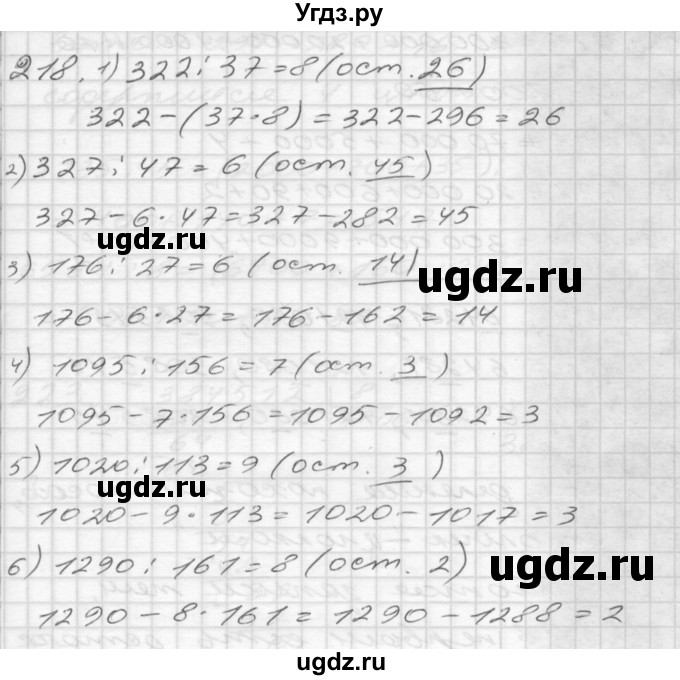 Угдз.ру
218. 1) 322 : 37 = 8 (ост. 26)
322 - (37 · 8) = 322 - 296 = 26
2) 327 : 47 = 6 (ост. 45)
327 - 6 · 47 = 327 - 282 = 45
ugdz.ru
3) 176 : 27 = 6 (ост. 14)
ugdz.ru
176 - 6 · 27 = 176 - 162 = 14
4) 1095 : 156 = 7 (ост. 3)
1095 - 7 · 156 = 1095 - 1092 = 3
5) 1020 : 113 = 9 (ост. 3)
ugdz.ru
1020 - 9 · 113 = 1020 - 1017 = 3
6) 1290 : 161 = 8 (ост. 2)
ugdz.ru
1290 - 8 · 161 = 1290 - 1288 = 2
ugdz.ru